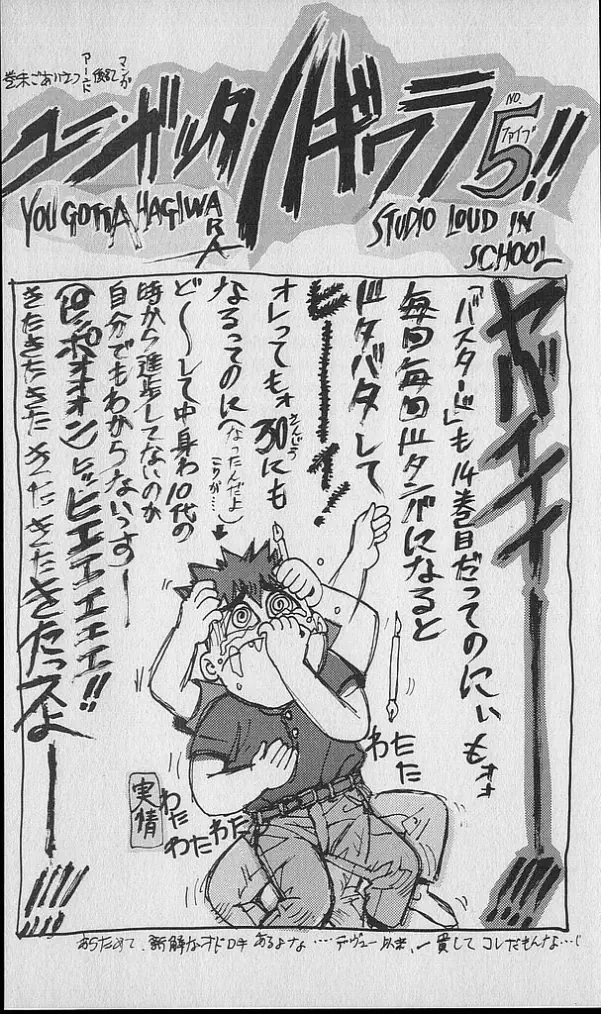 巻末ごあいさつ
アーンド
マンガ後記
ユー・ガッタ・ハギワラ
NO.
5!!
ファイブ
YOU GOTTA HAGIWARA
STUDIO LOUD IN
SCHOOL
ヤバイイイ――
「バスタード」も14巻目だってのにいもォォ
毎回毎回ドタンバになると
ドタバタして
ヒーーイ!
オレってもォ30にも
さんじゅう
なるってのに(なったんだよ
こりが…)
ど〜して中身わ10代の
時から進歩してないのか
自分でもわからないっすー
(ピンポオオオン)ヒッヒエエエエエエ!!
きたきたきたきたきたきたきたっスよ――
わたた
実情
わたわたわたわた
あらためて、新鮮なオドロキあるよな……デヴュー以来、一貫してコレだもんな…!